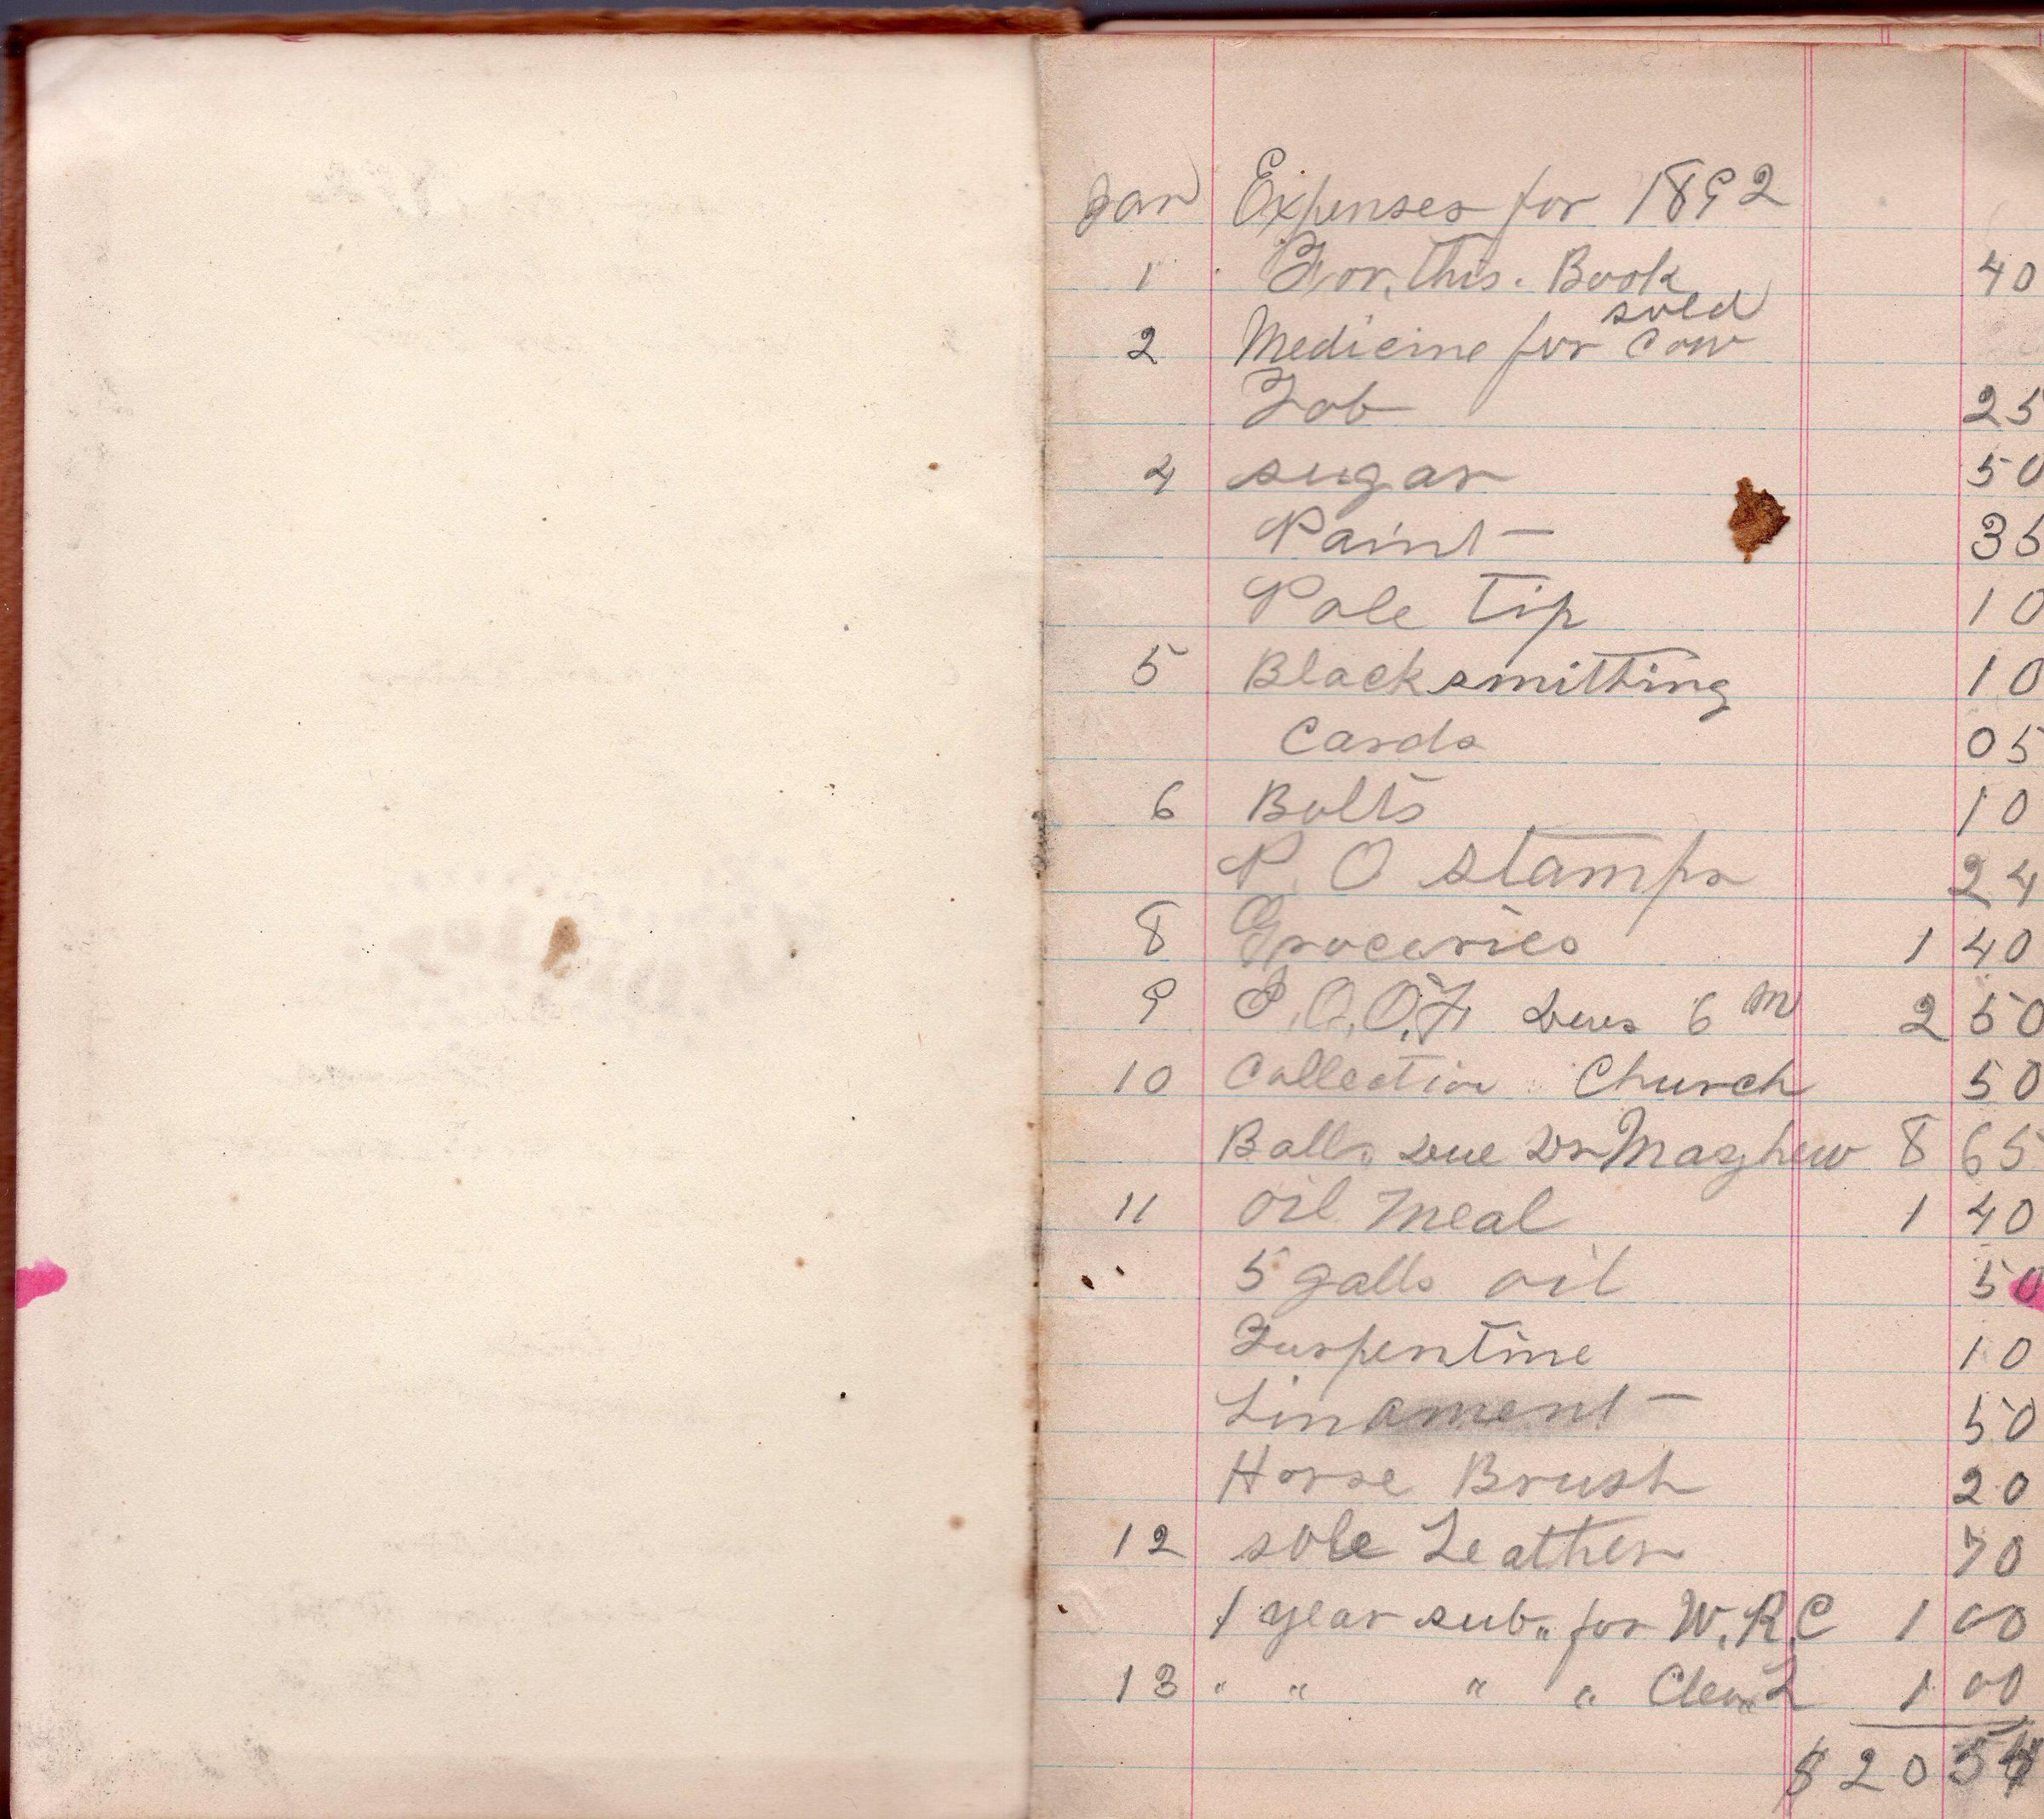 Jan Expenses for 1892
1 For, this. Book 40
sold
2 Medicine for Cow
Fob 25
4 sugar 50
Paint 35
Pole Tip 10
5 Blacksmitting 10
Cards 05
6 Bolts 10
P. O stamps 24
8 Groceries 1 40
9 I.O.O.F. Dues 6 m 2 50
10 Collection Church 50
Ball, Due Dr Mayhew 8 65
11 oil Meal 1 40
5 galls oil 50
Turpentine 10
Linament 50
Horse Brush 20
12 sole Leather 70
1 year sub,, for W.R.C 1 00
13 " " " " Clev,, L 1 00
$ 20 54